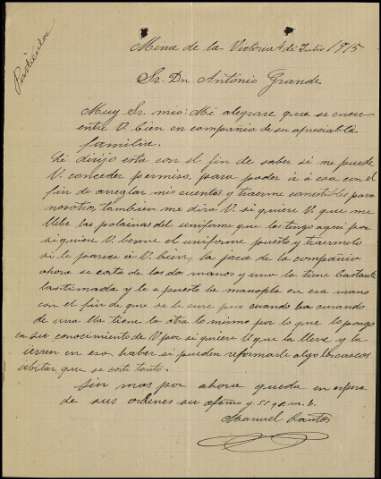 Particular
Mina de la Victoria 4 de Julio 1915
Sr. Dn Antonio Grande
Muy Sr. mio: Me alegrare que se encu
entre V. bien en compañia de su apreciable
familia.
Le dirijo esta con el fin de saber si me puede
V. conceder permiso, para poder ir á esa con el
fin de arreglar mis cuentas y traerme para
nosotros, tambien me dira V. si quiere V que me
lleve las polainas del uniforme que las tengo aqui por
si quiere V. el uniforme puesto y traermelo
si le parece á V. bien, la jaca de la compañia
ahora se esta de las dos manos y una la tiene bastante
lastimada y le e puesto la manopla en esa mano
con el fin de que se le cure pues cuando ba curando
de una la tiene la otra lo mismo por lo que lo pongo
en su conocimiento de V por si quiere V que la lleve y la
en esa haber si pueden reformarle algo los cascos
ebitar que se este tanto.
Sin mas por ahora queda en espera
de sus ordenes su afmo y S. S. q. s. m. b.
Manuel Santos